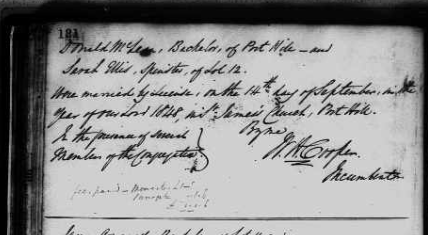 Donald McLean, Bachelor, of Port Hill - and
Sarah Ellis, Spinster, of Lot 12.
were married by License, on the 14th day of September, in the
year of our Lord 1848, in St. James's Church, Port Hill.
In the presence of several By me
Members of the Congregation. H. H. Cooper.
Incumbent
fee paid -